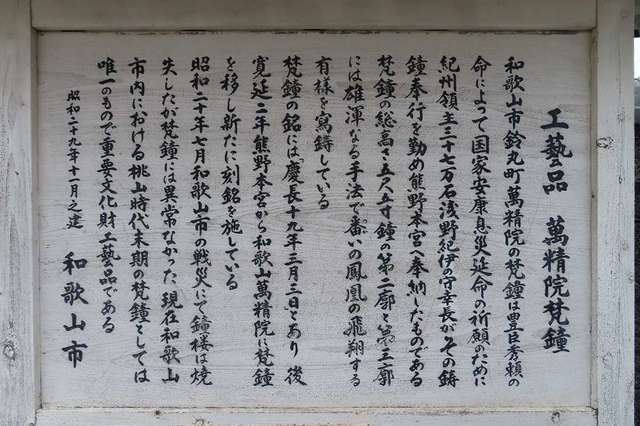 工藝品　萬精院梵鐘
和歌山市鈴丸町萬精院の梵鐘は豊臣秀頼の
命によって国家安康息災延命の祈願のために
紀州領主三十七万石浅野紀伊の守幸長がその鋳
鐘奉行を勤め熊野本宮へ奉納したものである
梵鐘の総高さ五尺五寸鐘の第二廓と第三廓
には雄渾なる手法で番いの鳳凰の飛翔する
有様を寫鋳している
梵鐘の銘には「慶長十九年三月三日とあり　後
寛延二年熊野本宮から和歌山萬精院に梵鐘
を移し新たに刻銘を施している
昭和二十年七月和歌山市の戦災にて鐘楼は焼
失したが梵鐘には異常なかった　現在和歌山
市内における桃山時代末期の梵鐘としては
唯一のもので重要文化財工藝品である
昭和二十九年十一月之建　和歌山市